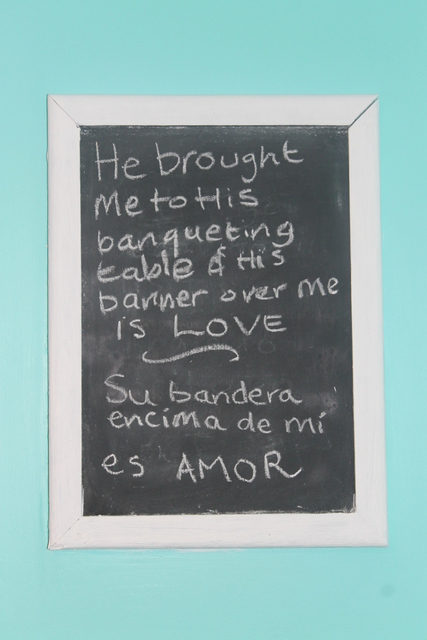 He brought
Me to His
banqueting
table & His
banner over me
is LOVE
Su bandera
encima de mí
es AMOR